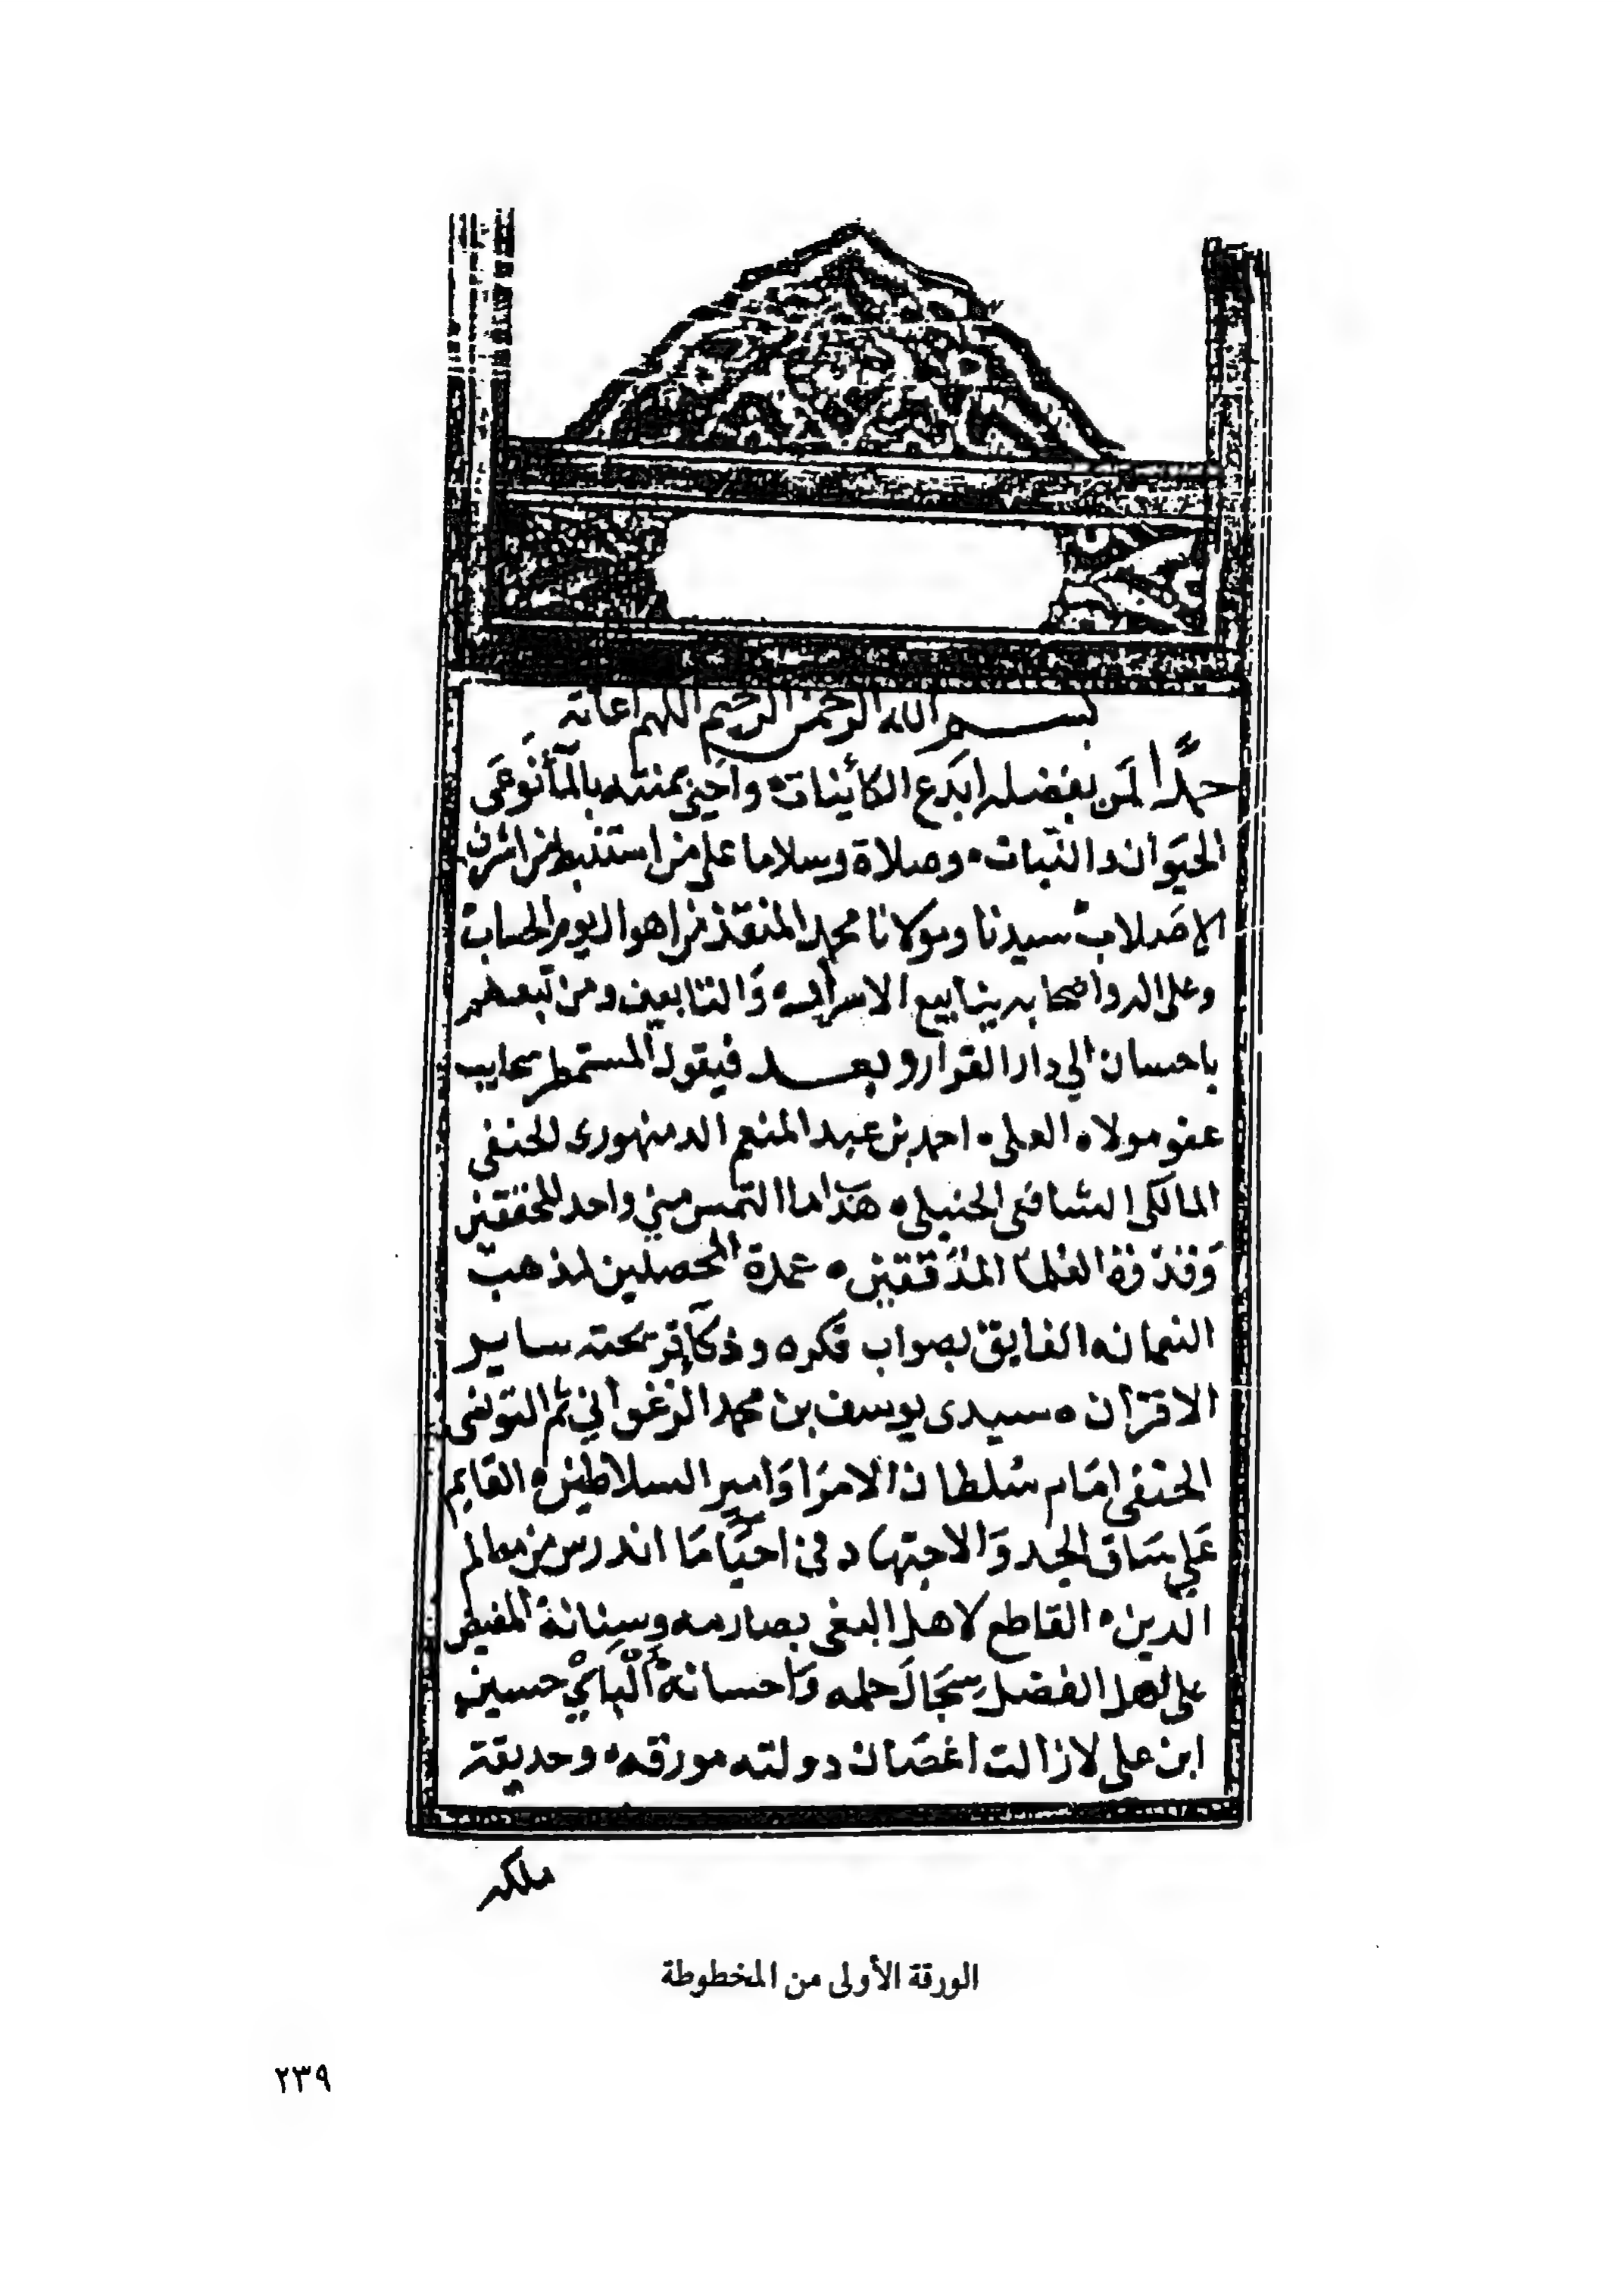 بسم الله الرحمن الرحيم اللهم اعانة
حمدًا لمَن بفضله ابدَع الكائنات واحيي بمنته بالمآنوعَى
الحيَوان والنبات وصلاة وسلاما على من استنبط من اشرف
الاصَلاب سيدنا ومولانا محمد المنقذ من اهوال يوم الحساب
وعلى اله واصحابه ينابيع الاسرار وَالتابعين ومن تبعهم
باحسان الي دار القرار وبعد فيقول المستمطر سحايب
عفو مولاه العلى احمد بن عبد المنعم الدمنهورى الحنفى
المالكى الشافعى الحنبلى هَذا ما التمس مني واحد المحققين
وَفذ العلما المدَققين عمدة المحصلين لمذهب
النعمان الفايق بصواب فكره وذكَا قريحته ساير
الاقرَان سيدى يوسف بن محمد الزغواني ثم التونسى
الحنفى امَام سُلطان الامرَا وَامير السلاطين القايم
عَلي سَاق الجد وَالاجتهاد في احيَا مَا اندرس من معالم
الدين القاطع لاهل البغى بصارمه وسِنانه المفيض
على اهل الفضل سِجَال حلمه وَاحسانه البَاىْ حسين
ابن على لازالت اغصَان دولته مورقه وحديقة
ملكه
الورقة الأولى من المخطوطة
٢٣٩